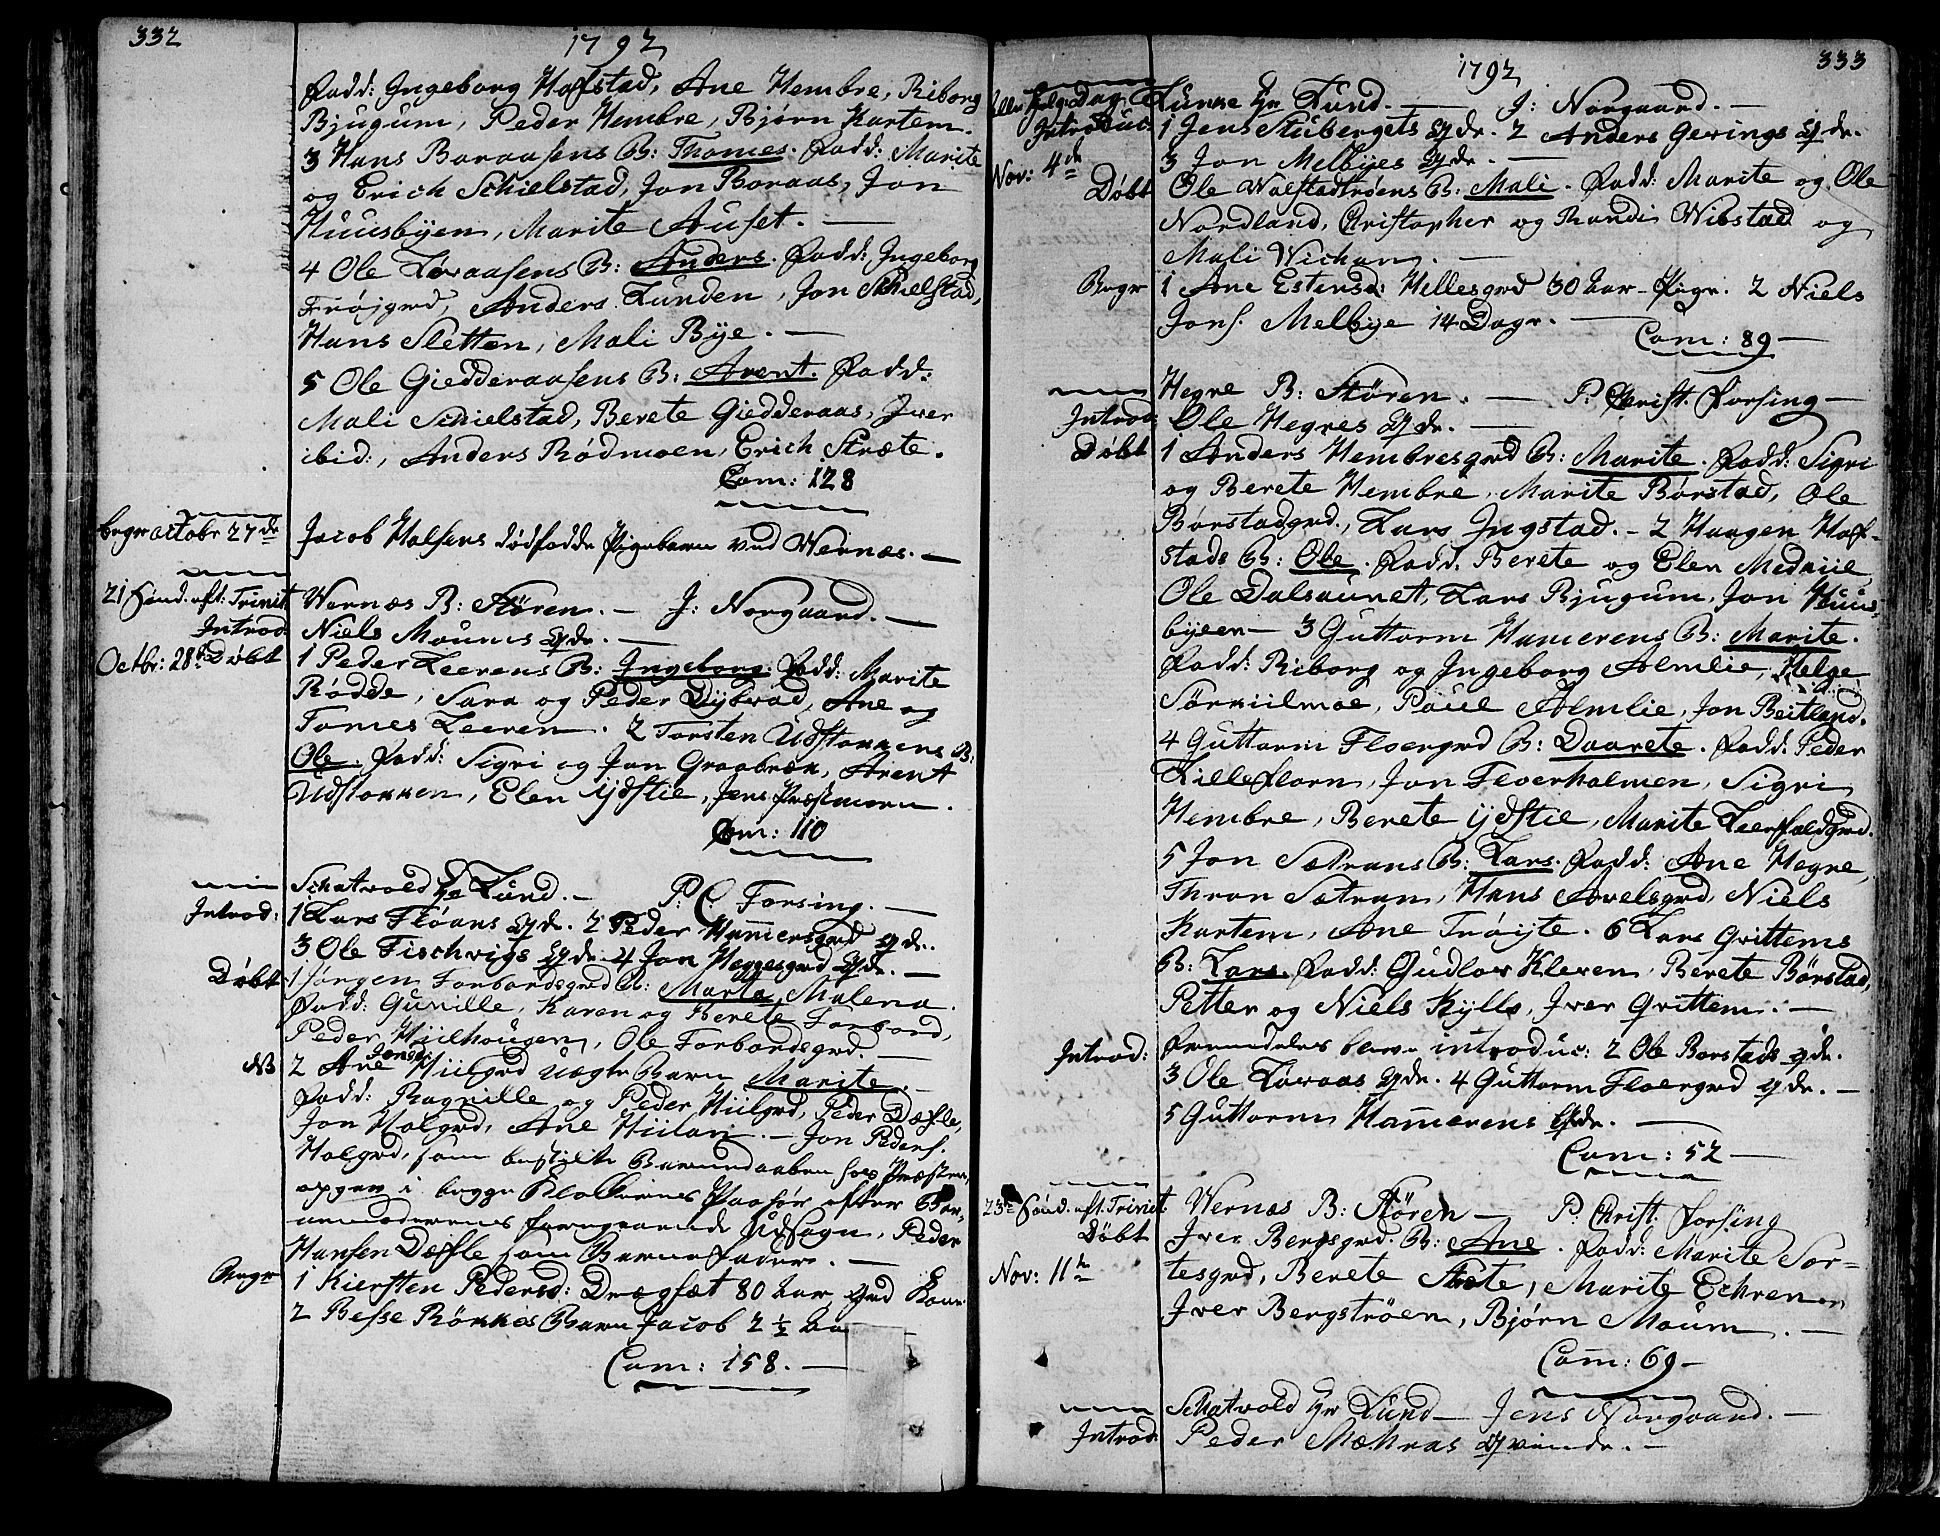 332
1792
Fadd: Ingeborg Hofstad, Ane Hembre, Riborg
Bjugum, Peder Hembre, Bjørn Kartem.
3 Hans Boraasens B: Thomes. Fadd: Marite
og Erich Schielstad, Jon Boraas, Jon
Huusbyen, Marite Auset. —
4 Ole Løvaasens B: Anders. Fadd: Ingeborg
Trøjgrd, Anders Lunden, Jon Schielstad,
Hans Sletten, Mali Bye. —
5 Ole Giedderaasens B: Arent. Fadd:
Mali Schielstad, Berete Giedderaas, Iver
ibid:, Anders Rødmoen, Erich Stræte.
Com: 128
begr octobr 27de
Jacob Halsens dødfødde Pigebarn ved Wernæs. —
21 Sønd. aft: Trinit
Wernæs B: Støren. — J: Norgaard. —
Introd:
Niels Mounes Qvdr. —
Octbr: 28de Døbt
1 Peder Leerens B: Ingeborg. Fadd: Marite
Rødde, Sara og Peder Dybvad, Ane og
Tomes Leeren. 2 Torsten Udstokkens B:
Ole. Fadd: Sigri og Jon Graabræk, Arent
Udstokken, Elen ijdstie, Jens Præstmoen.
Com: 110
Schatvold Hr Lund. — P. C. Forsing. —
Introd:
1 Lars Fløans Qvdr. 2 Peder Hamersgrd Qvdr.
3 Ole Fischvigs Qvdr. 4 Jon Hegresgrd Qvdr. —
Døbt
1 Jørgen Forbordsgrd B: Marta Malena.
Fadd: Gunille, Karen og Berete Forbord,
Peder Hiilhougen, Ole Forbordsgrd. —
NB
2 Ane Jonsd: Hiilgrd uægte Barn Marite. —
Fadd: Ragnille og Peder Hiilgrd, Peder Dæfle,
Jon Holgrd, Ane Hiilan. — Jon Peders.
Holgrd, som bestilte Barnedaaben hos Præsten,
opgav i begge Klokkernes Paahør efter Bar-
nemoderens foregaaende Udsagn, Peder
Hansen Dæfle som Barnefader. —
Begr
1 Kiersten Pedersd: Drægset 80 Aar
2 Besse Rønnes Barn Jacob 2 ½
Com: 158. —
333
1792
Alle Helg: Dag
Lunke Hr Lund. — J: Norgaard. —
Introduc:
1 Jens Stubergets Qvdr. 2 Anders Gevings Qvdr.
Nov: 4de
3 Jon Melbyes Qvdr. —
Døbt
Ole Wolstadtrøens B: Mali. Fadd: Marite og Ole
Nordland, Christopher og Randi Wibstad og
Mali Wichan. —
Begr
1 Ane Estensd: Hellesgrd 30 Aar — Pige. 2 Niels
Jons. Melbye 14 Dage. —
Com: 89 —
Hegre B: Støren. — P: Christ. Forsing —
Introd:
Ole Hegres Qvdr. —
Døbt
1 Anders Hembresgrd B: Marite. Fadd: Sigri
og Berete Hembre, Marite Børstad, Ole
Børstadgrd., Lars Ingstad. — 2 Haagen Hof-
stads B: Ole. Fadd. Berete og Elen Medkiil
Ole Dalsaunet, Lars Bjugum, Jon Huus-
byeen — 3 Guttorm Hamerens B: Marite.
Fadd: Riborg og Ingeborg Almlie, Helge
Sørkiilmoe, Poul Almlie, Jon Beitland.
4 Guttorm Floergrd B: Daarete. Fadd: Peder
Lillefloren, Jon Floerholmen, Sigri
Hembre, Berete ijdstie, Marite Leerfaldgrd.
5 Jon Sætrans B: Lars. Fadd: Ane Hegre,
Thron Sætran, Hans Avelsgrd, Niels
Kartem, Ane Trøyte. 6 Lars Qvittems
B: Lars. Fadd: Gudlov Kleven, Berete Børstad,
Petter og Niels Kyllo, Iver Qvittem. —
Introd:
Fremdeles blev introduc: 2 Ole Borstads Qvdr.
3 Ole Løvaas Qvdr. 4 Guttorm Floergrd Qvdr. —
5 Guttorm Hamerens Qvdr. —
Com: 52 —
23de Sønd. aft: Trinit
Wernæs B: Støren — P: Christ: Forsing
Døbt
Iver Bergsgrd B: Ane. Fadd: Marite Sor-
Nov: 11te
tesgrd, Berete Stræte, Marite Echren
Iver Bergstrøen, Bjørn Moum. —
Com: 69 —
Schatvold Hr Lund — Jens Norgaard. —
Introd:
Peder Mæhras Qvinde. —